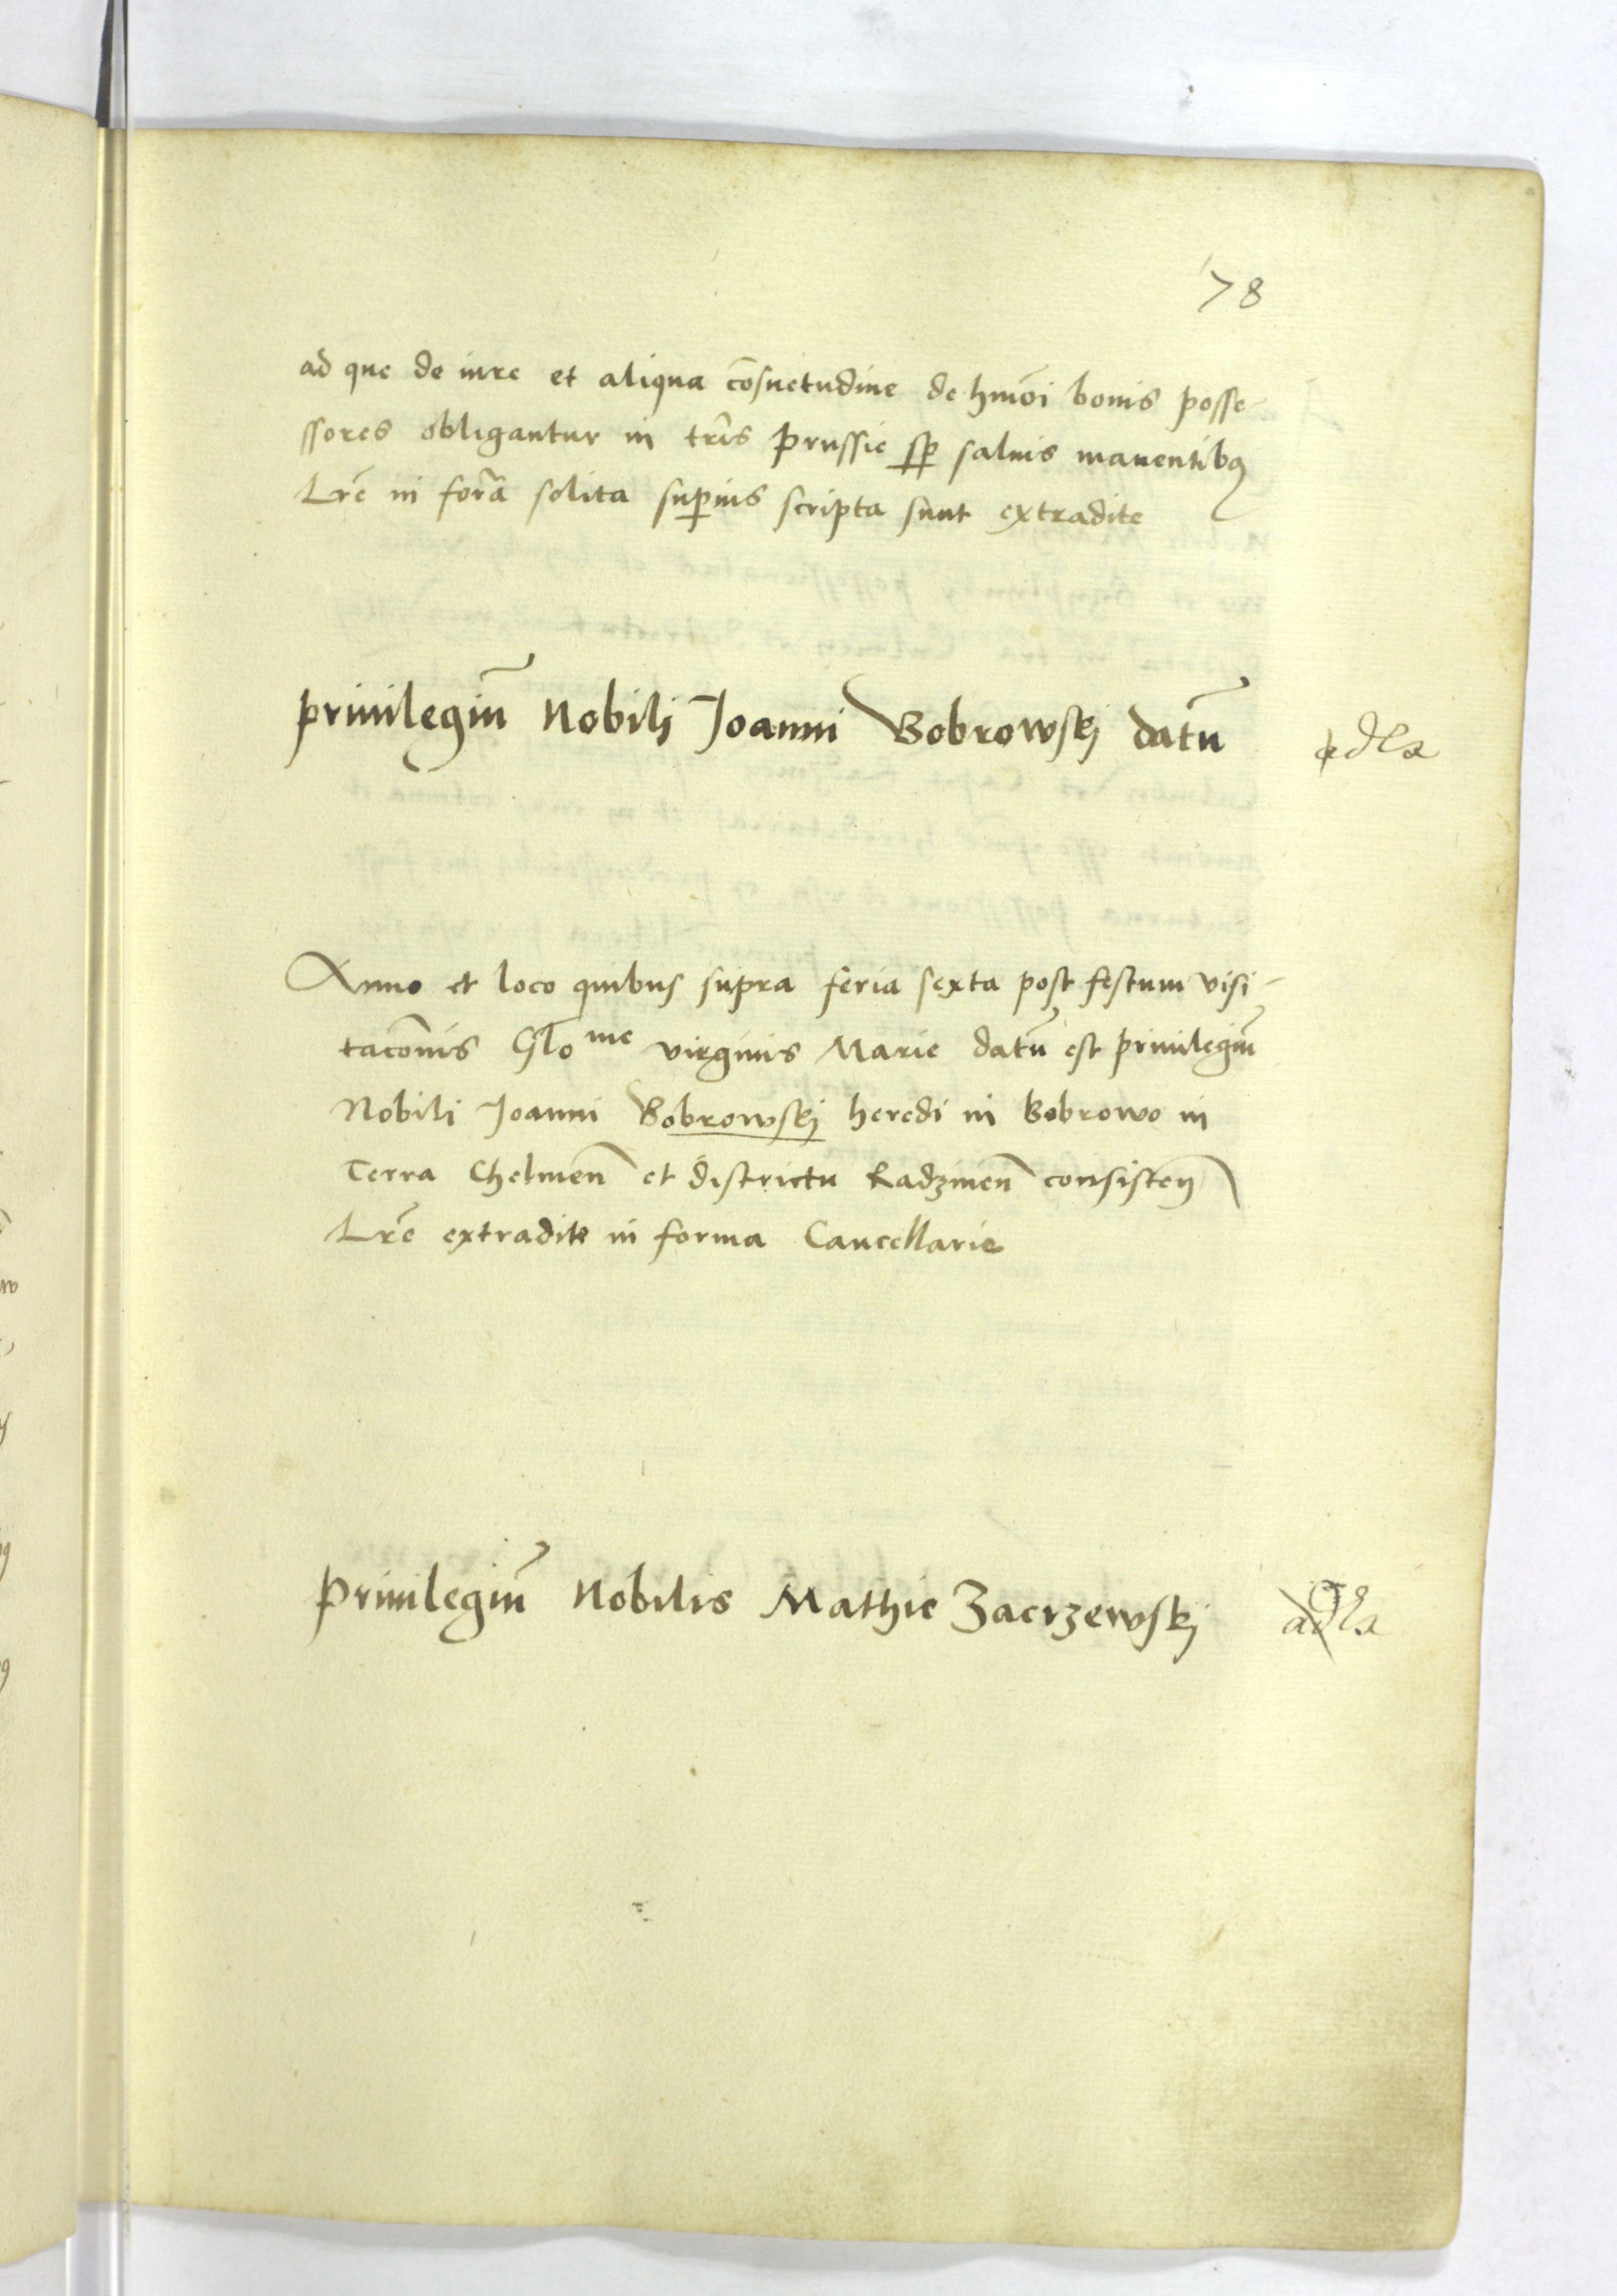 78
ad que de iure et aliqua cõsuetudine de hmõi bonis posse-
ssores obligantur in tris̃ prussie sp̃ saluis manentibꝫ
Lrẽ in forã solita supius scripta sunt extradite
priuilegiũ Nobili Joanni Bobrowskj datũ
Anno et loco quibus supra feria sexta post festum visi-
tacõnis Glome virginis Marie datũ est priuilegiũ
Nobili Joanni Bobrowskj heredi in Bobrowo in
Terra Chelmen̄ et districtu Radzinen̄ consisten̄
Lrẽ extradite in forma Cancellarie
Priuilegiũ Nobilis Mathie Zacrzewskj